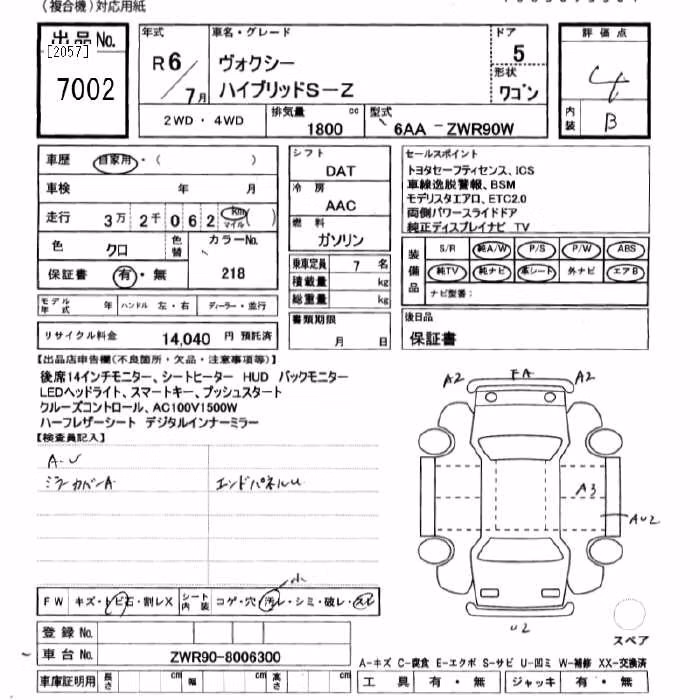 (複合機)対応用紙
出品No.
[2057]
7002
年式
R6/7月
車名・グレード
ヴォクシー
ハイブリッドS-Z
ドア
5
形状
ワゴン
評価点
4
内装
B
2WD・4WD
排気量
1800 cc
型式
6AA-ZWR90W
車歴
自家用・( )
車検 年 月
走行 3万2千062 km マイル ( )
色 クロ 色替
カラーNo. 218
保証書 有・無
モデル年式 年 ハンドル 左・右 ディーラー・並行
リサイクル料金 14,040 円 預託済
シフト
DAT
冷房
AAC
燃料
ガソリン
乗車定員 7 名
積載量 kg
総重量 kg
書類期限
月 日
セールスポイント
トヨタセーフティセンス、ICS
車線逸脱警報、BSM
モデリスタエアロ、ETC2.0
両側パワースライドドア
純正ディスプレイナビ TV
装備品
S/R 純A/W P/S P/W ABS
純TV 純ナビ 革シート 外ナビ エアB
ナビ型番:
後日品
保証書
【出品店申告欄(不良箇所・欠品・注意事項等)】
後席14インチモニター、シートヒーター HUD バックモニター
LEDヘッドライト、スマートキー、プッシュスタート
クルーズコントロール、AC100V1500W
ハーフレザーシート デジタルインナーミラー
【検査員記入】
A-U
ミラーカバーA エンドパネルU
小
FW キズ・トビ石・割レX シート内装 コゲ・穴・汚レ・シミ・破レ・スレ
登録No.
車台No. ZWR90-8006300
車庫証明用 長さ cm 幅 cm 高さ cm
A2 FA A2
A3
AU2
U2
スペア
A-キズ C-腐食 E-エクボ S-サビ U-凹ミ W-補修 XX-交換済
工具 有・無 ジャッキ 有・無